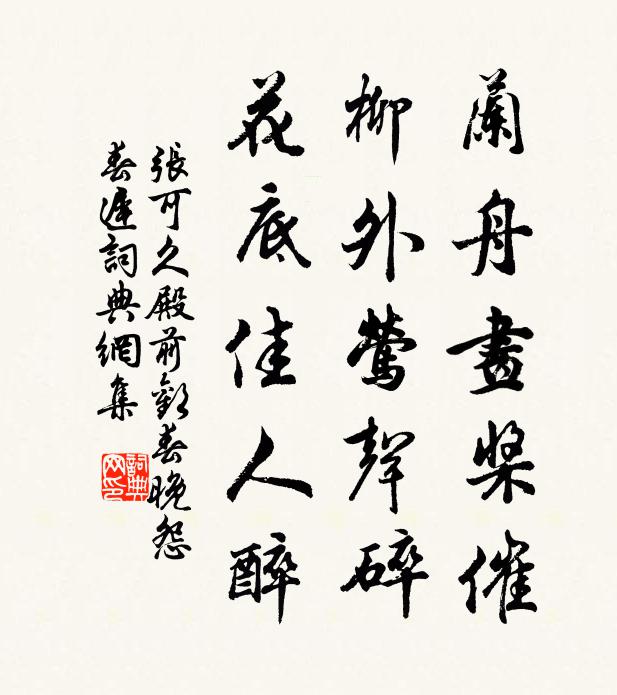 蘭舟畫槳催
柳外鶯聲碎
花底佳人醉
張可久殿前歡春晚怨
春遲詞典網集
詞典网印